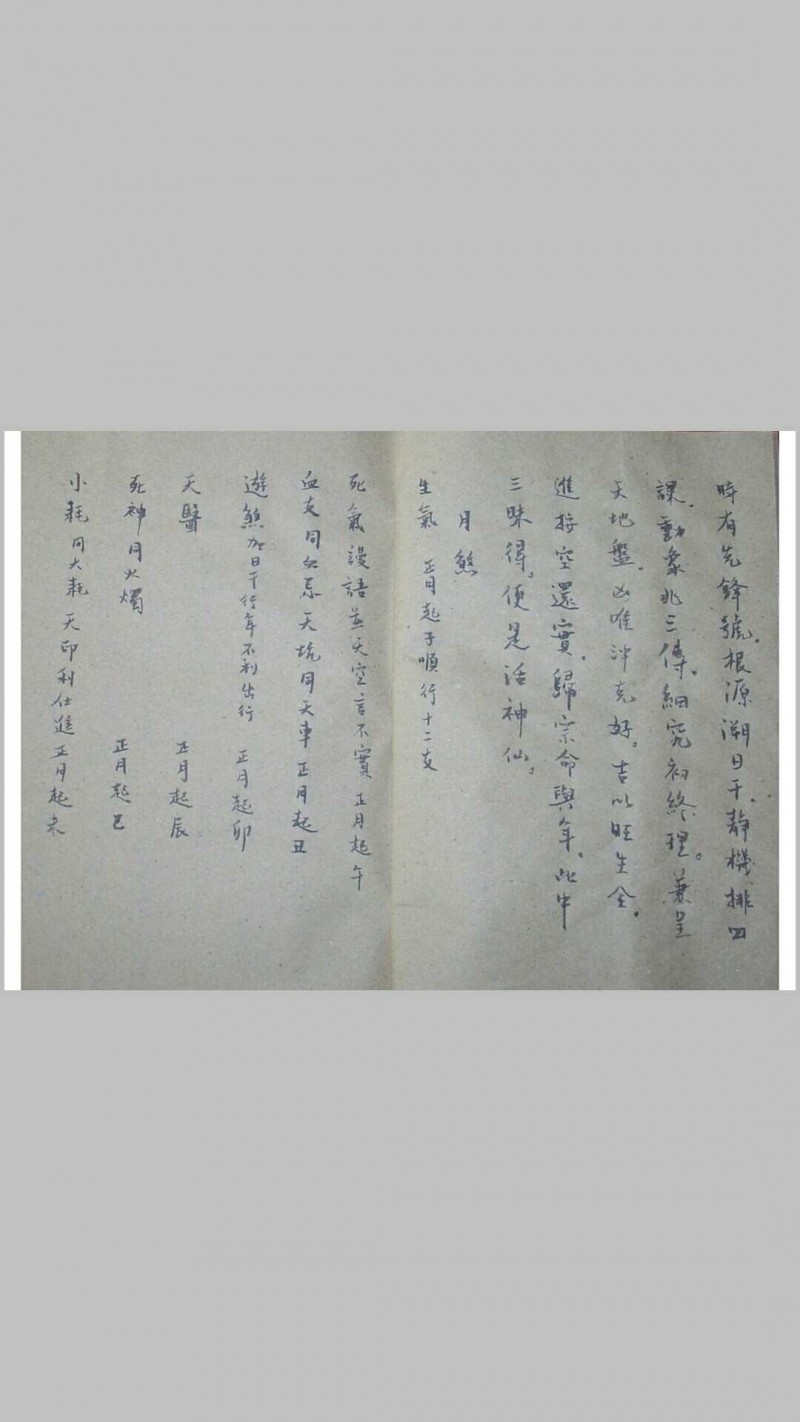 時有先鋒號。根源溯日干。靜機排四
課。動象兆三傳。細究初終理。兼呈
天地盤。凶唯沖克好。吉以旺生全。
進將空還實。歸宗命與年。此中
三昧得。便是活神仙。
月煞
生氣 正月起子順行十二支
死氣謾語並天空言不實 正月起午
血支同血忌 天坑同天車 正月起丑
遊煞加日干行年不利出行 正月起卯
天醫 正月起辰
死神同火燭 正月起巳
小耗同大耗 天印利仕進 正月起未